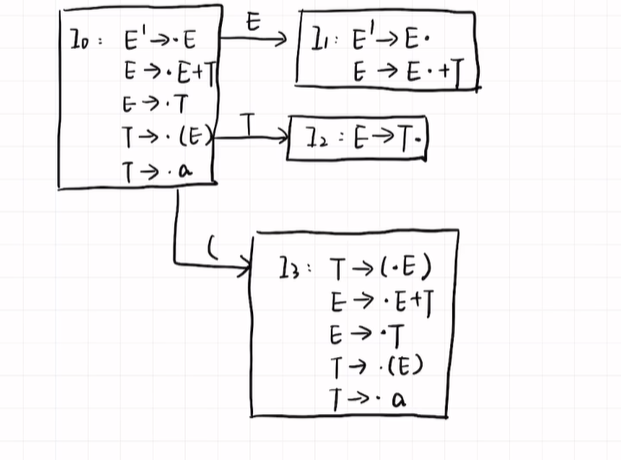 I₀: E'→·E
E→·E+T
E→·T
T→·(E)
T→·a
E
I₁: E'→E·
E→E·+T
T
I₂: E→T·
(
I₃: T→(·E)
E→·E+T
E→·T
T→·(E)
T→·a